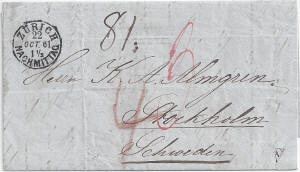 ZÜRICH
22
OCT. 61
1½
NACHMITTAG
81.
Herrn K. A. Almgren.
Stockholm
Schweden